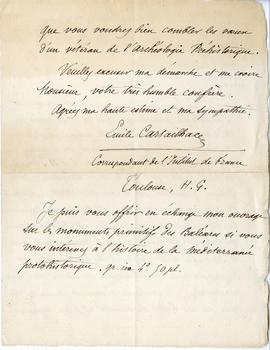 que vous voudrez bien combler les vœux
d'un vétéran de l'Archéologie Préhistorique.
Veuillez excuser ma démarche et me croire
Monsieur, votre très humble confrère.
Agréez ma haute estime et ma sympathie.
Emile Cartailhac
Correspondant de l'Institut de France
Toulouse, H. G.
Je puis vous offrir en échange mon ouvrage
sur les monuments primitifs des Baléares si vous
vous intéressez à l'histoire de la méditerranée
protohistorique. gr. in 4° 50 pl.